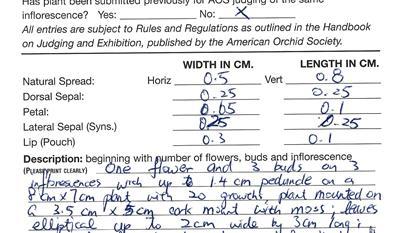 Has plant been submitted previously for AOS judging of the same
inflorescence? Yes: No: X
All entries are subject to Rules and Regulations as outlined in the Handbook
on Judging and Exhibition, published by the American Orchid Society.
WIDTH IN CM. LENGTH IN CM.
Natural Spread: Horiz 0.5 Vert 0.8
Dorsal Sepal: 0.25 0.25
Petal: 0.05 0.1
Lateral Sepal (Syns.) 0.25 0.25
Lip (Pouch) 0.3 0.1
Description: beginning with number of flowers, buds and inflorescence
(PLEASE PRINT CLEARLY) One flower and 3 buds on 3
inflorescences with up to 1.4 cm peduncle on a
8 cm x 7 cm plant with 20 growths, plant mounted on
a 3.5 cm x 5 cm cork mount with moss; leaves
elliptical up to 2 cm wide by 3 cm long;